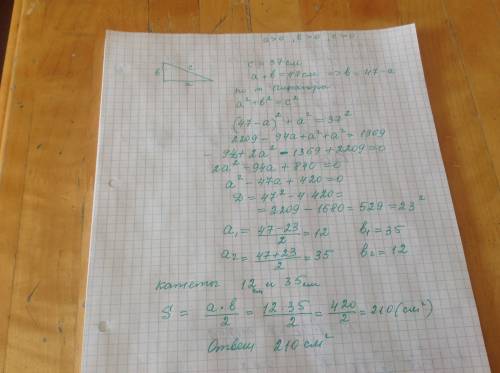 a>0, b>0, c>0
b c
a
c = 37 см
a + b = 47 см => b = 47 - a
по т. Пифагора
a² + b² = c²
(47 - a)² + a² = 37²
2209 - 94a + a² + a² = 1369
- 94a + 2a² - 1369 + 2209 = 0
2a² - 94a + 840 = 0
a² - 47a + 420 = 0
D = 47² - 4·420 =
= 2209 - 1680 = 529 = 23²
a₁ = (47-23)/2 = 12 b₁ = 35
a₂ = (47+23)/2 = 35 b₂ = 12
Катеты 12 см и 35 см
S = (a·b)/2 = (12·35)/2 = 420/2 = 210 (см²)
Ответ 210 см²